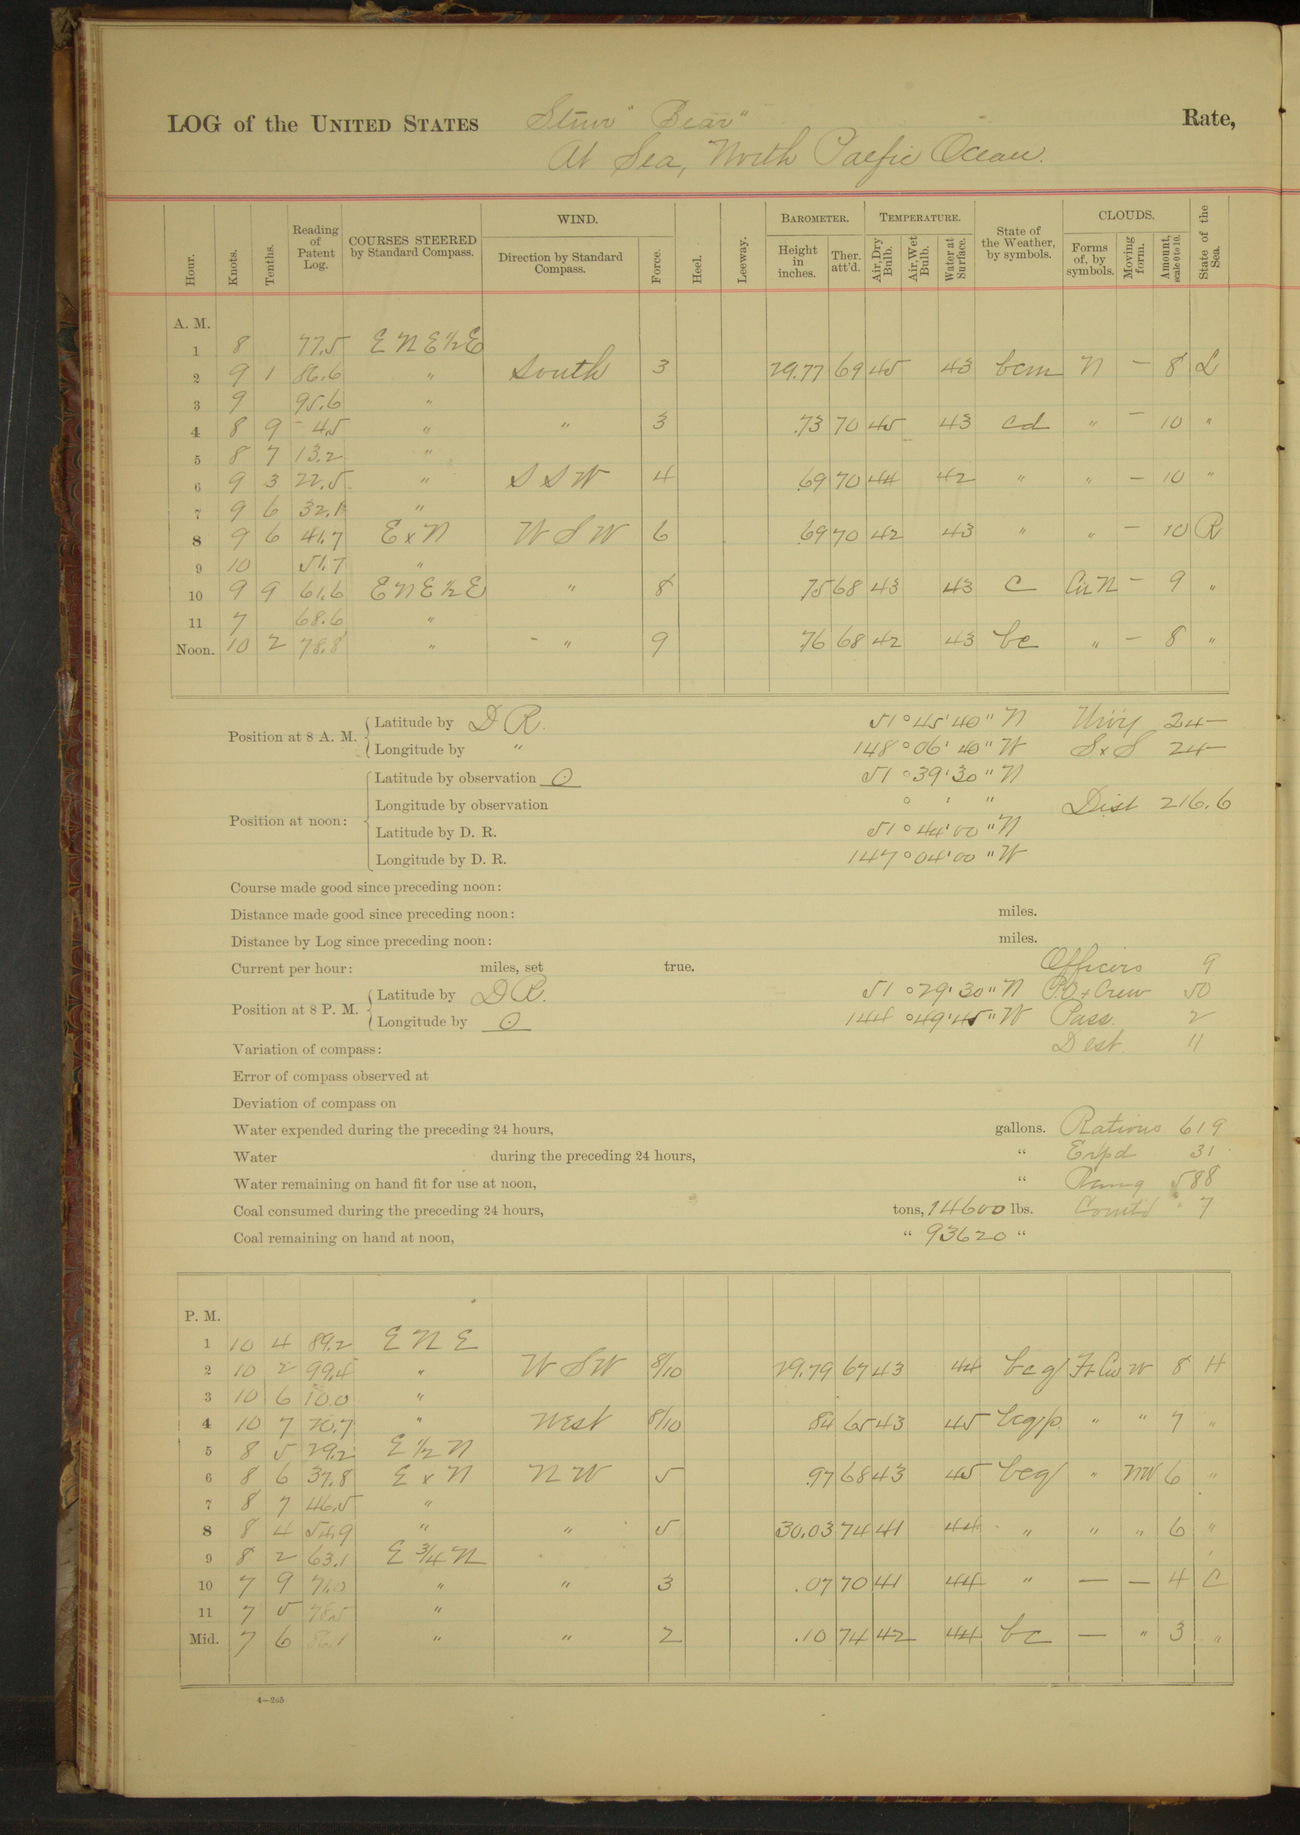 LOG of the UNITED STATES Stmr "Bear" Rate,
At Sea, North Pacific Ocean.
Hour. Knots. Tenths. Reading of Patent Log. COURSES STEERED by Standard Compass. WIND. Direction by Standard Compass. Force. Heel. Leeway. BAROMETER. Height in inches. Ther. att'd. TEMPERATURE. Air, Dry Bulb. Air, Wet Bulb. Water at Surface. State of the Weather, by symbols. CLOUDS. Forms of, by symbols. Moving form. Amount, scale 0 to 10. State of the Sea.
A. M.
1 8 77.5 E N E ½ E
2 9 1 86.6 " South 3 29.77 69 45 43 bcm N — 8 L
3 9 95.6 "
4 8 9 4.5 " " 3 .73 70 45 43 cd " — 10 "
5 8 7 13.2 "
6 9 3 22.5 " S S W 4 .69 70 44 42 " " — 10 "
7 9 6 32.1 "
8 9 6 41.7 E x N W S W 6 .69 70 42 43 " " — 10 R
9 10 51.7 "
10 9 9 61.6 E N E ½ E " 8 75 68 43 43 C Cu N — 9 "
11 7 68.6 "
Noon. 10 2 78.8 " " 9 76 68 42 43 bc " — 8 "
Position at 8 A. M. Latitude by D R. 51° 45' 40" N 24
Longitude by " 148° 06' 40" W S x S 24
Position at noon: Latitude by observation ☉ 51° 39' 30" N
Longitude by observation ° ' " Dist 216.6
Latitude by D. R. 51° 44' 00" N
Longitude by D. R. 147° 04' 00" W
Course made good since preceding noon:
Distance made good since preceding noon: miles.
Distance by Log since preceding noon: miles.
Current per hour: miles, set true. Officers 9
Position at 8 P. M. Latitude by D R. 51° 29' 30" N P.O + Crew 50
Longitude by ☉ 144° 49' 45" W Pass. 2
Variation of compass: Dest. 11
Error of compass observed at
Deviation of compass on
Water expended during the preceding 24 hours, gallons. Rations 619
Water during the preceding 24 hours, " Exp'd 31
Water remaining on hand fit for use at noon, " 588
Coal consumed during the preceding 24 hours, tons, 14600 lbs. Comt'd 7
Coal remaining on hand at noon, " 93620 "
P. M.
1 10 4 89.2 E N E
2 10 2 99.4 " W S W 8/10 29.79 67 43 44 bcq Fr Cu W 8 H
3 10 6 10.0 "
4 10 7 20.7 " West 8/10 84 65 43 45 bcqp. " " 7 "
5 8 5 29.2 E ½ N
6 8 6 37.8 E x N N W 5 .97 68 43 45 bcq " NW 6 "
7 8 7 46.5 "
8 8 4 54.9 " " 5 30.03 74 41 44 " " " 6 "
9 8 2 63.1 E ¾ N
10 7 9 71.0 " " 3 .07 70 41 44 " — — 4 C
11 7 5 78.5 "
Mid. 7 6 86.1 " " 2 .10 74 42 44 bc — " 3 "
4—265